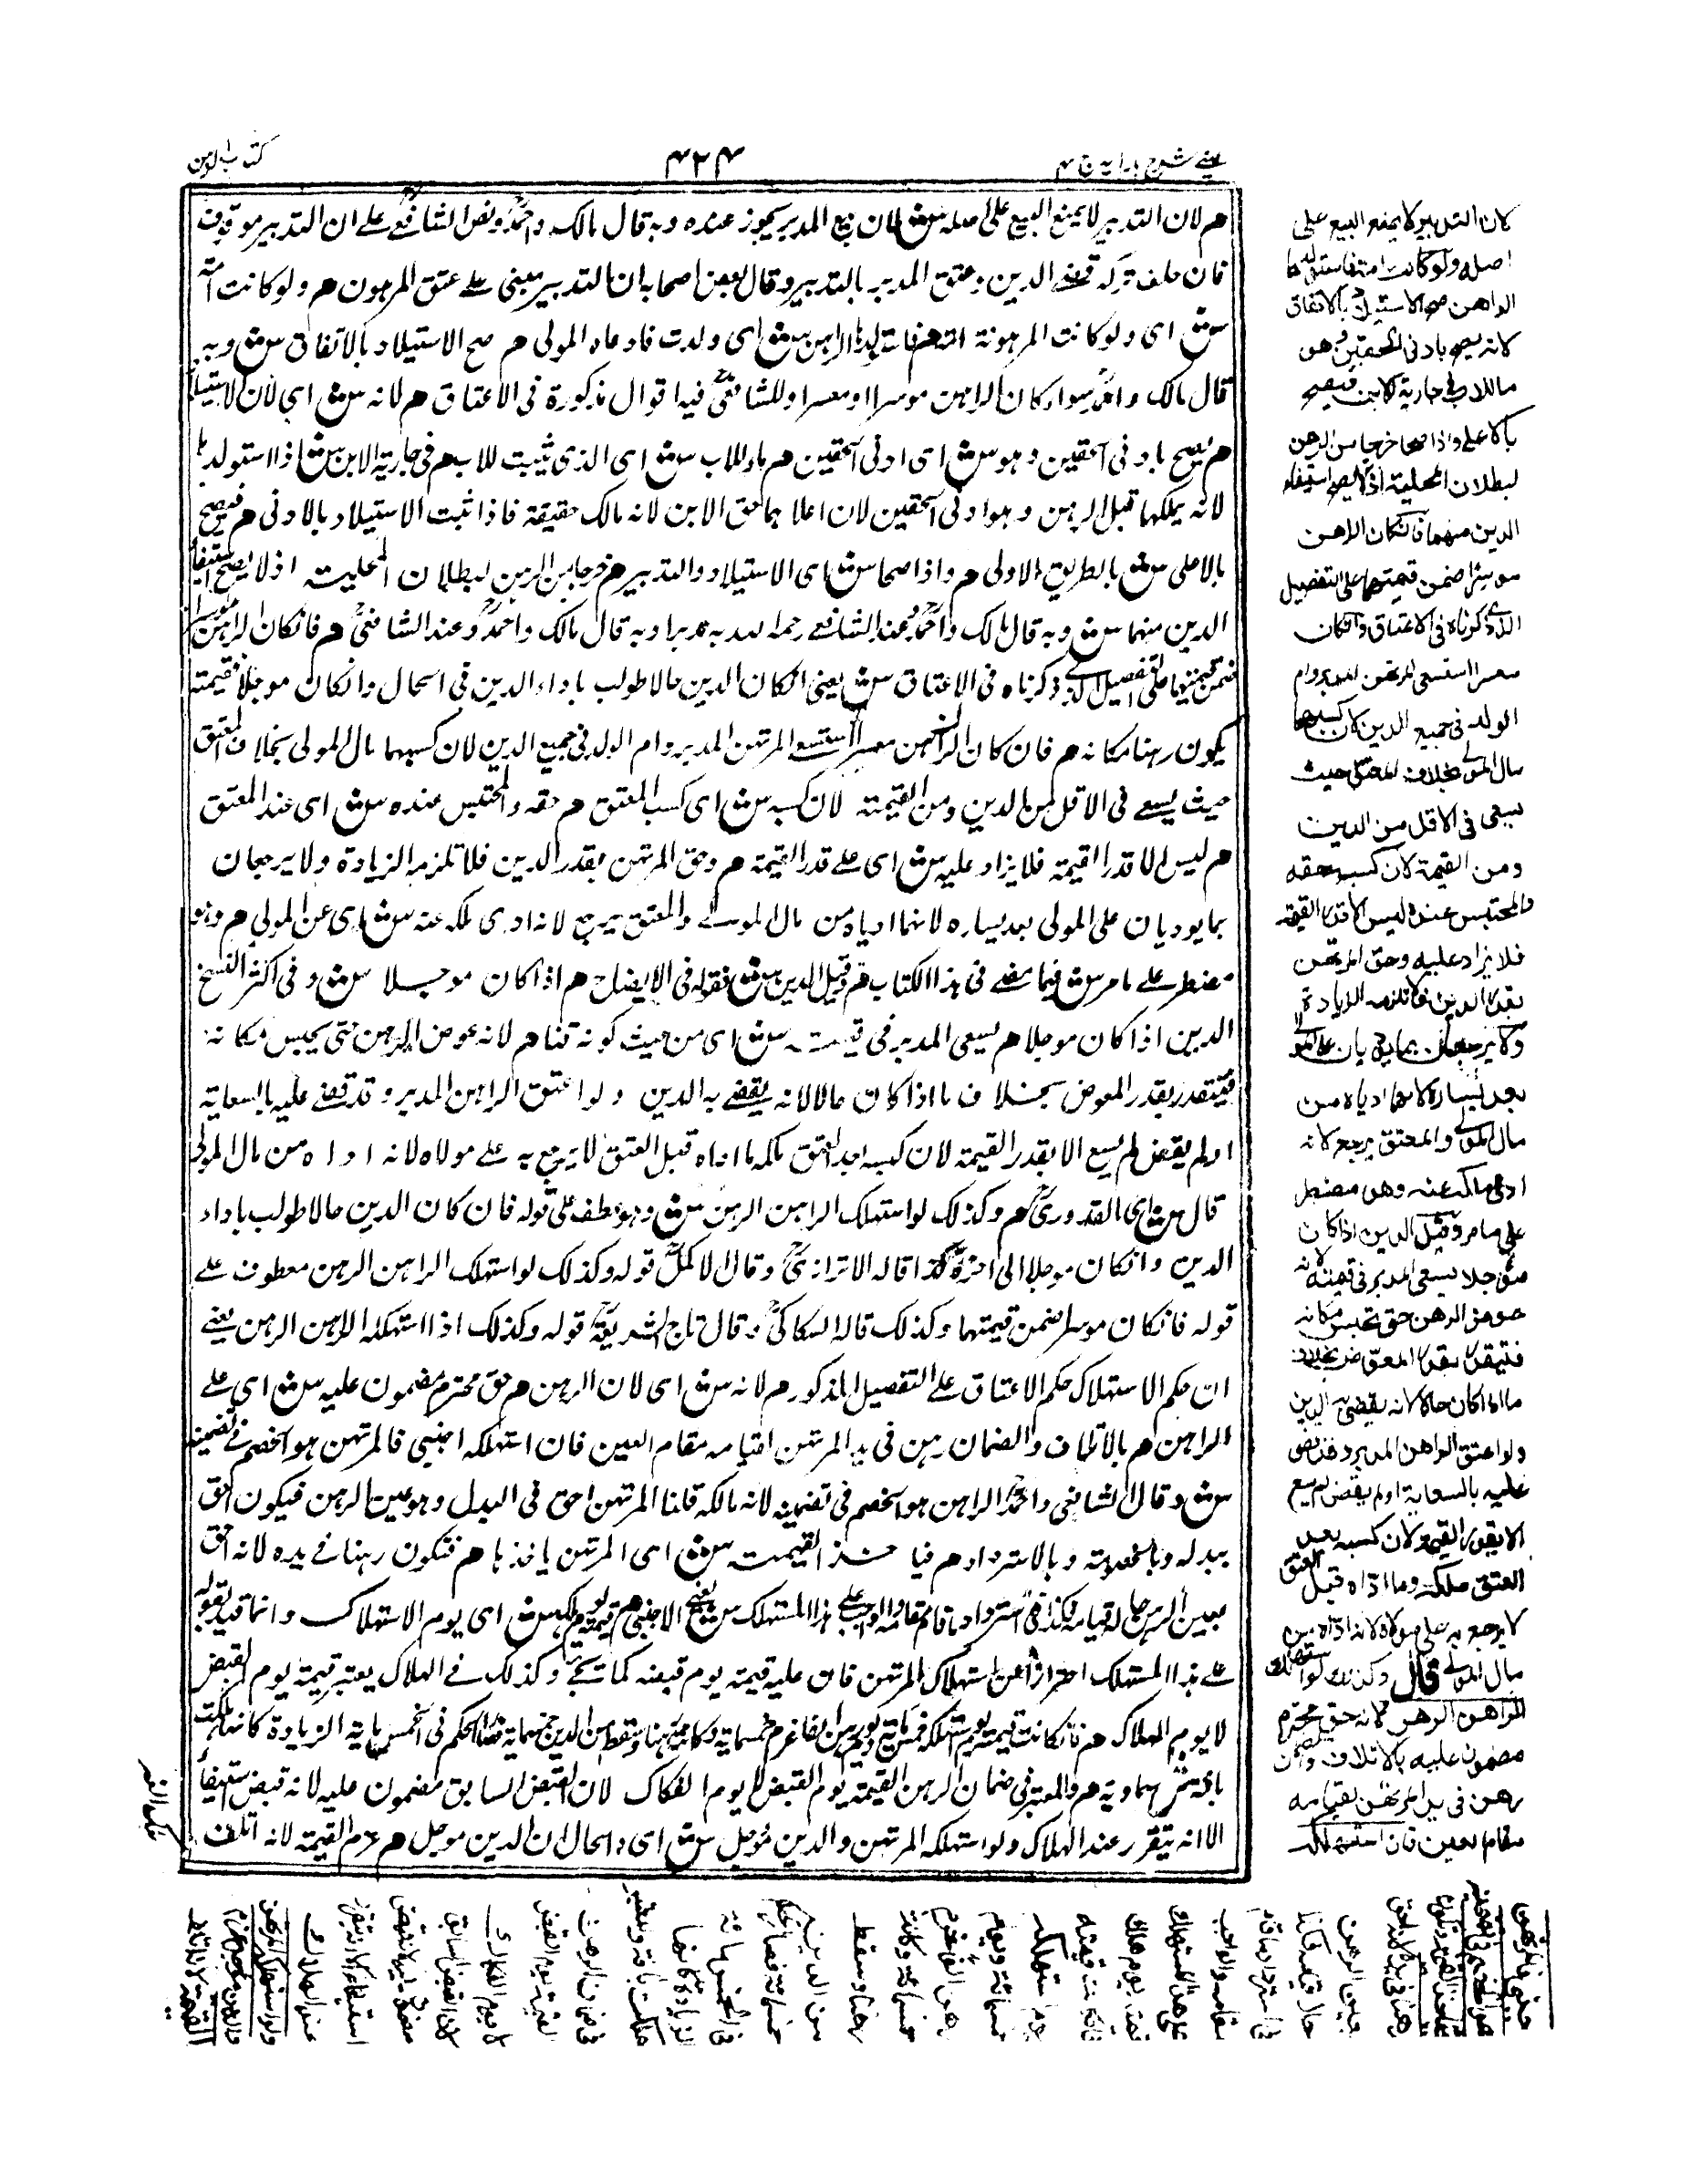 عینے شرح ہدایہ ج ۴
۴۲۴
کتاب الرہن
ھم لان التدبیر لا یمنع البیع علی اصلہ ش لان بیع المدبر یجوز عندہ وبہ قال مالک واحمد ونص الشافعی علے ان التدبیر موقوف
فان خلف ترکہ قضے الدین وعتق المدبر بالتدبیر وقال بعض اصحابہ ان التدبیر مبنی علے عتق المرہون ھم ولو کانت امتہ
ش ای ولو کانت المرہونۃ امۃ ھم فاستولدہا الراہن ش ای ولدت فادعاہ المولی ھم صح الاستیلاد بالاتفاق ش وبہ
قال مالک واحمد سواء کان الراہن موسرا او معسرا وللشافعی فیہ اقوال مذکورۃ فی الاعتاق ھم لانہ ش ای لان الاستیلاد
ھم یصح بادنی الحقین وہو ش ای ادنی الحقین ھم ما للاب ش ای الذی یثبت للاب ھم فی جاریۃ الابن ش اذا استولدہا
لانہ یملکہا قبل الرہن وہو ادنی الحقین لان اعلاہما حق الابن لانہ مالک حقیقۃ فاذا ثبت الاستیلاد بالادنی ھم فیصح
بالاعلی ش بالطریق الاولی ھم واذا صحا ش ای الاستیلاد والتدبیر ھم خرجا من الرہن لبطلان المحلیۃ اذ لا یصح استیفاء
الدین منہما ش وبہ قال مالک واحمد وعند الشافعے رحمہ اللہ وبہ قال مالک واحمد وعند الشافعی ھم فان کان الراہن موسرا
ضمن قیمتہا علی التفصیل الذی ذکرناہ فی الاعتاق ش یعنی ان کان الدین حالا طولب باداء الدین فی الحال وان کان موجلا فقیمتہ
یکون رہنا مکانہ ھم فان کان الراہن معسرا استسعے المرتہن المدبر وام الولد فی جمیع الدین لان کسبہما مال المولی بخلاف المعتق
حیث یسعے فی الاقل من الدین ومن القیمۃ لان کسبہ ش ای کسب المعتق ھم حقہ والمحتبس عندہ ش ای عند المعتق
ھم لیس الا قدر القیمۃ فلا یزاد علیہ ش ای علے قدر القیمۃ ھم وحق المرتہن بقدر الدین فلا تلزمہ الزیادۃ ولا یرجعان
بما یودیان علی المولی بعد یسارہ لانہما ادیاہ من مال المولے والمعتق یرجع لانہ ادی ملکہ عنہ ش ای عن المولی ھم وہو
مضطر علے ما مر ش فیما مضے فی ہذا الکتاب ھم وقیل الدین ش نقلہ فی الایضاح ھم اذا کان موجلا ش وفی اکثر النسخ
الدین اذا کان موجلا ھم یسعی المدبر فی قیمتہ ش ای من حیث کونہ قنا ھم لانہ عوض الرہن حتی یحبس مکانہ
فیتقدر بقدر المعوض بخلاف ما اذا کان حالا لانہ یقضے بہ الدین ولو اعتق الراہن المدبر وقد قضے علیہ بالسعایۃ
او لم یقض لم یسع الا بقدر القیمۃ لان کسبہ بعد العتق ملکہ وما اداہ قبل العتق لا یرجع بہ علے مولاہ لانہ اداہ من مال المولی
قال ش ای القدوری ھم وکذلک لو استہلک الراہن الرہن ش وہو عطف علی قولہ فان کان الدین حالا طولب باداء
الدین وان کان موجلا الی آخرہ ہکذا قالہ الاترازی وقال الاکمل قولہ وکذلک لو استہلک الراہن الرہن معطوف علے
قولہ فان کان موسرا ضمن قیمتہا وکذلک قالہ السکاکی وقال تاج الشریعۃ قولہ وکذلک اذا استہلک الراہن الرہن یعنے
ان حکم الاستہلاک حکم الاعتاق علے التفصیل المذکور ھم لانہ ش ای لان الرہن ھم حق محترم مضمون علیہ ش ای علے
الراہن ھم بالاتلاف والضمان رہن فی ید المرتہن لقیامہ مقام العین فان استہلکہ اجنبی فالمرتہن ہو الخصم فی تضمینہ
ش وقال الشافعی واحمد الراہن ہو الخصم فی تضمینہ لانہ مالکہ قلنا المرتہن احق فی البدل وہو عین الرہن فیکون احق
ببدلہ وبالخصومۃ وبالاسترداد ھم فیاخذ القیمۃ ش ای المرتہن یاخذہا ھم فتکون رہنا فے یدہ لانہ احق
بعین الرہن حال قیامہ فکذا فی استرداد ما قام مقامہ والواجب علے ہذا المستہلک ش یعنی الاجنبی ھم قیمتہ یوم ہلک ش ای یوم الاستہلاک وانما قید بقولہ
علے ہذا المستہلک احترازا عن استہلاک المرتہن فان علیہ قیمتہ یوم قبضہ کما یجئ وکذلک فے الہلاک یعتبر قیمتہ یوم القبض
لا یوم الہلاک ھم فان کانت قیمتہ یوم استہلکہ خمسمائۃ ویوم رہن الفا غرم خمسمائۃ وکانت رہنا وسقط من الدین خمسمائۃ فصار الحکم فی الخمسمائۃ الزیادۃ کانہا ہلکت
بافۃ سماویۃ ھم والمعتبر فی ضمان الرہن القیمۃ یوم القبض لا یوم الفکاک لان القبض السابق مضمون علیہ لانہ قبض استیفاء
الا انہ یتقرر عند الہلاک ولو استہلکہ المرتہن والدین موجل ش ای والحال ان الدین موجل ھم غرم القیمۃ لانہ اتلف
کان التدبیر لا یمنع البیع علی
اصلہ ولو کانت امۃ فاستولدہا
الراھن صح الاستیلاد بالاتفاق
لانہ یصح بادنی الحقین وھو
ما للاب فی جاریۃ الابن فیصح
بالاعلی واذا صحا خرجا من الرھن
لبطلان المحلیۃ اذ لا یصح استیفاء
الدین منھما فان کان الراھن
موسرا ضمن قیمتھا علی التفصیل
الذی ذکرناہ فی الاعتاق وان کان
معسرا استسعی المرتھن المدبر وام
الولد فی جمیع الدین لان کسبھما
مال المولی بخلاف المعتق حیث
یسعی فی الاقل من الدین
ومن القیمۃ لان کسبہ حقہ
والمحتبس عندہ لیس الا قدر القیمۃ
فلا یزاد علیہ وحق المرتھن
بقدر الدین فلا تلزمہ الزیادۃ
ولا یرجعان بما یودیان علی المولی
بعد یسارہ لانھما ادیاہ من
مال المولی والمعتق یرجع لانہ
ادی ملکہ عنہ وھو مضطر
علی ما مر وقیل الدین اذا کان
موجلا یسعی المدبر فی قیمتہ لانہ
عوض الرھن حتی تحبس مکانہ
فیتقدر بقدر المعوض بخلاف
ما اذا کان حالا لانہ یقضی بہ الدین
ولو اعتق الراھن المدبر وقد قضی
علیہ بالسعایۃ او لم یقض لم یسع
الا بقدر القیمۃ لان کسبہ بعد
العتق ملکہ وما اداہ قبل العتق
لا یرجع بہ علی مولاہ لانہ اداہ من
مال المولی قال وکذلک لو استھلک
الراھن الرھن لانہ حق محترم
مضمون علیہ بالاتلاف والضمان
رھن فی ید المرتھن لقیامہ
مقام العین فان استھلکہ
اجنبی فالمرتھن
ھو الخصم فی تضمینہ
فیاخذ القیمۃ وتکون
رھنا فی یدہ لانہ احق
بعین الرھن
حال قیامہ فکذا
فی استرداد ما قام
مقامہ والواجب
علی ھذا المستھلک
قیمتہ یوم ھلک
فان کانت قیمتہ
یوم استھلکہ
خمسمائۃ ویوم
رھن الفا غرم
خمسمائۃ وکانت
رھنا وسقط
من الدین
خمسمائۃ فصار الحکم
فی الخمسمائۃ
الزیادۃ کانھا
ھلکت بافۃ والمعتبر
فی ضمان الرھن
القیمۃ یوم القبض
لا یوم الفکاک
لان القبض السابق
مضمون علیہ لانہ قبض
استیفاء الا انہ یتقرر
عند الھلاک
ولو استھلکہ المرتھن
والدین موجل غرم
القیمۃ لانہ اتلف